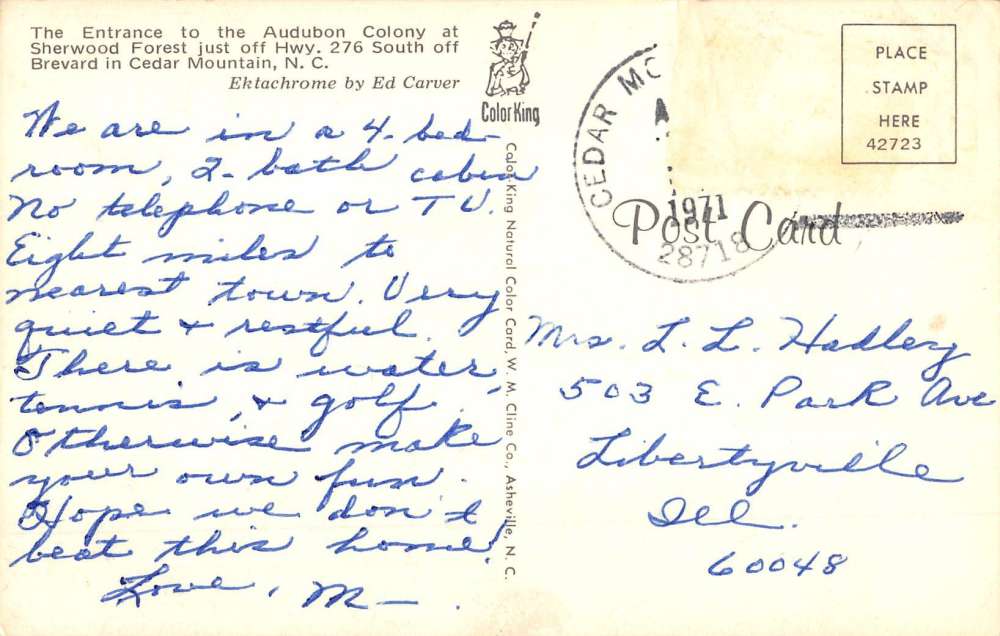 The Entrance to the Audubon Colony at
Sherwood Forest just off Hwy. 276 South off
Brevard in Cedar Mountain, N. C.
Ektachrome by Ed Carver
We are in a 4-bed-
room, 2-bath cabin
No telephone or TV.
Eight miles to
nearest town. Very
quiet + restful.
There is water,
tennis, + golf.
Otherwise make
your own fun.
Hope we don't
beat this home!
Love, M—.
Color King
Color King Natural Color Card, W. M. Cline Co., Asheville, N. C.
CEDAR MO
1971
28718
PLACE
STAMP
HERE
42723
Post Card
Mrs. L. L. Hadley
503 E. Park Ave
Libertyville
Ill.
60048